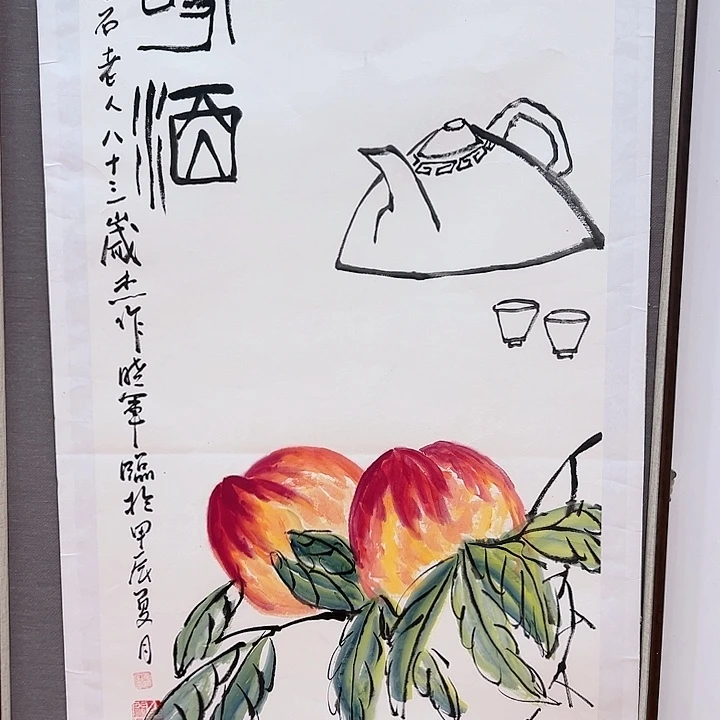 酒
石老人八十三歲杰作晓軍臨於甲辰夏月